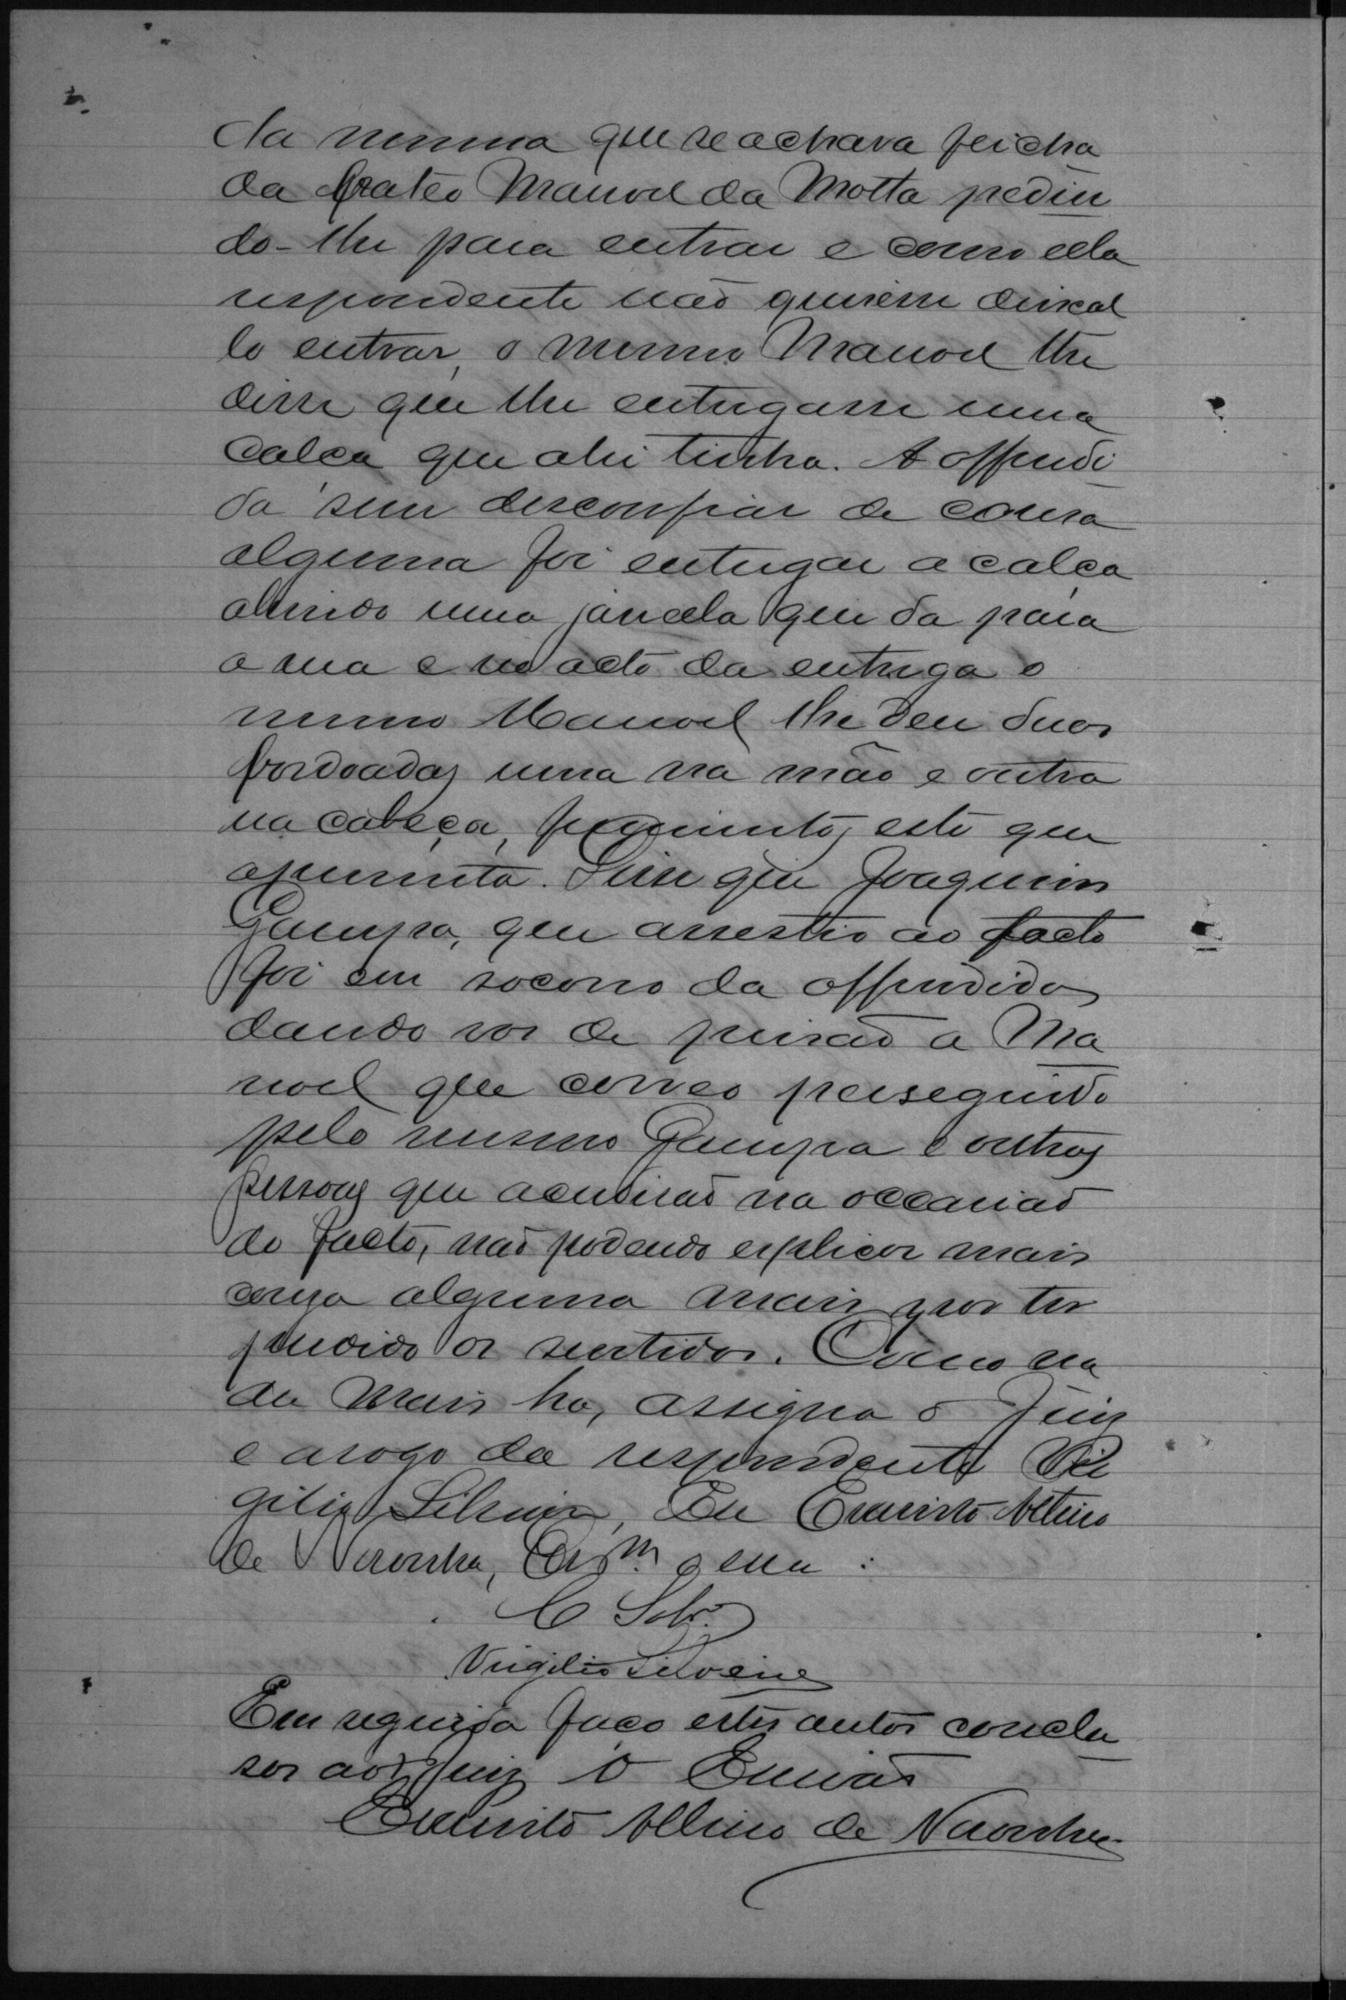 da mesma que se achava feicha
da bateo Manoel da Motta pedin
do-lhe para entrar e como ella
respondente não quisesse deixal
lo entrar, o mesmo Manoel lhe
disse que lhe entregasse uma
calça que ahi tinha. A offendi
da sem desconfiar de cousa
alguma foi entregar a calça
abrindo uma janella que da para
a rua e no acto da entrega o
mesmo Manoel lhe deu duas
bordoadas uma na mão e outra
na cabeça, ferimentos este que
apresenta. Disse que Joaquim
que assestio ao facto
foi em socorro da offendida
dando vos de prisão a Ma
noel que correo perseguido
pelo mesmo e outras
pessoas que acudirão na occasião
do facto, não podendo explicar mais
couza alguma mais por ter
perdido os sentidos. Como na
da mais ha, assigna o Juiz
e a rogo da respondente Vir
gilio Silveira, Eu Evaristo Altino
de Noronha, Escm. o escr :
C Sobr.
Virgilio Silveira
Em seguida faço estes autos conclu
sos ao Juiz O Escrivão
Evaristo Altino de Noronha